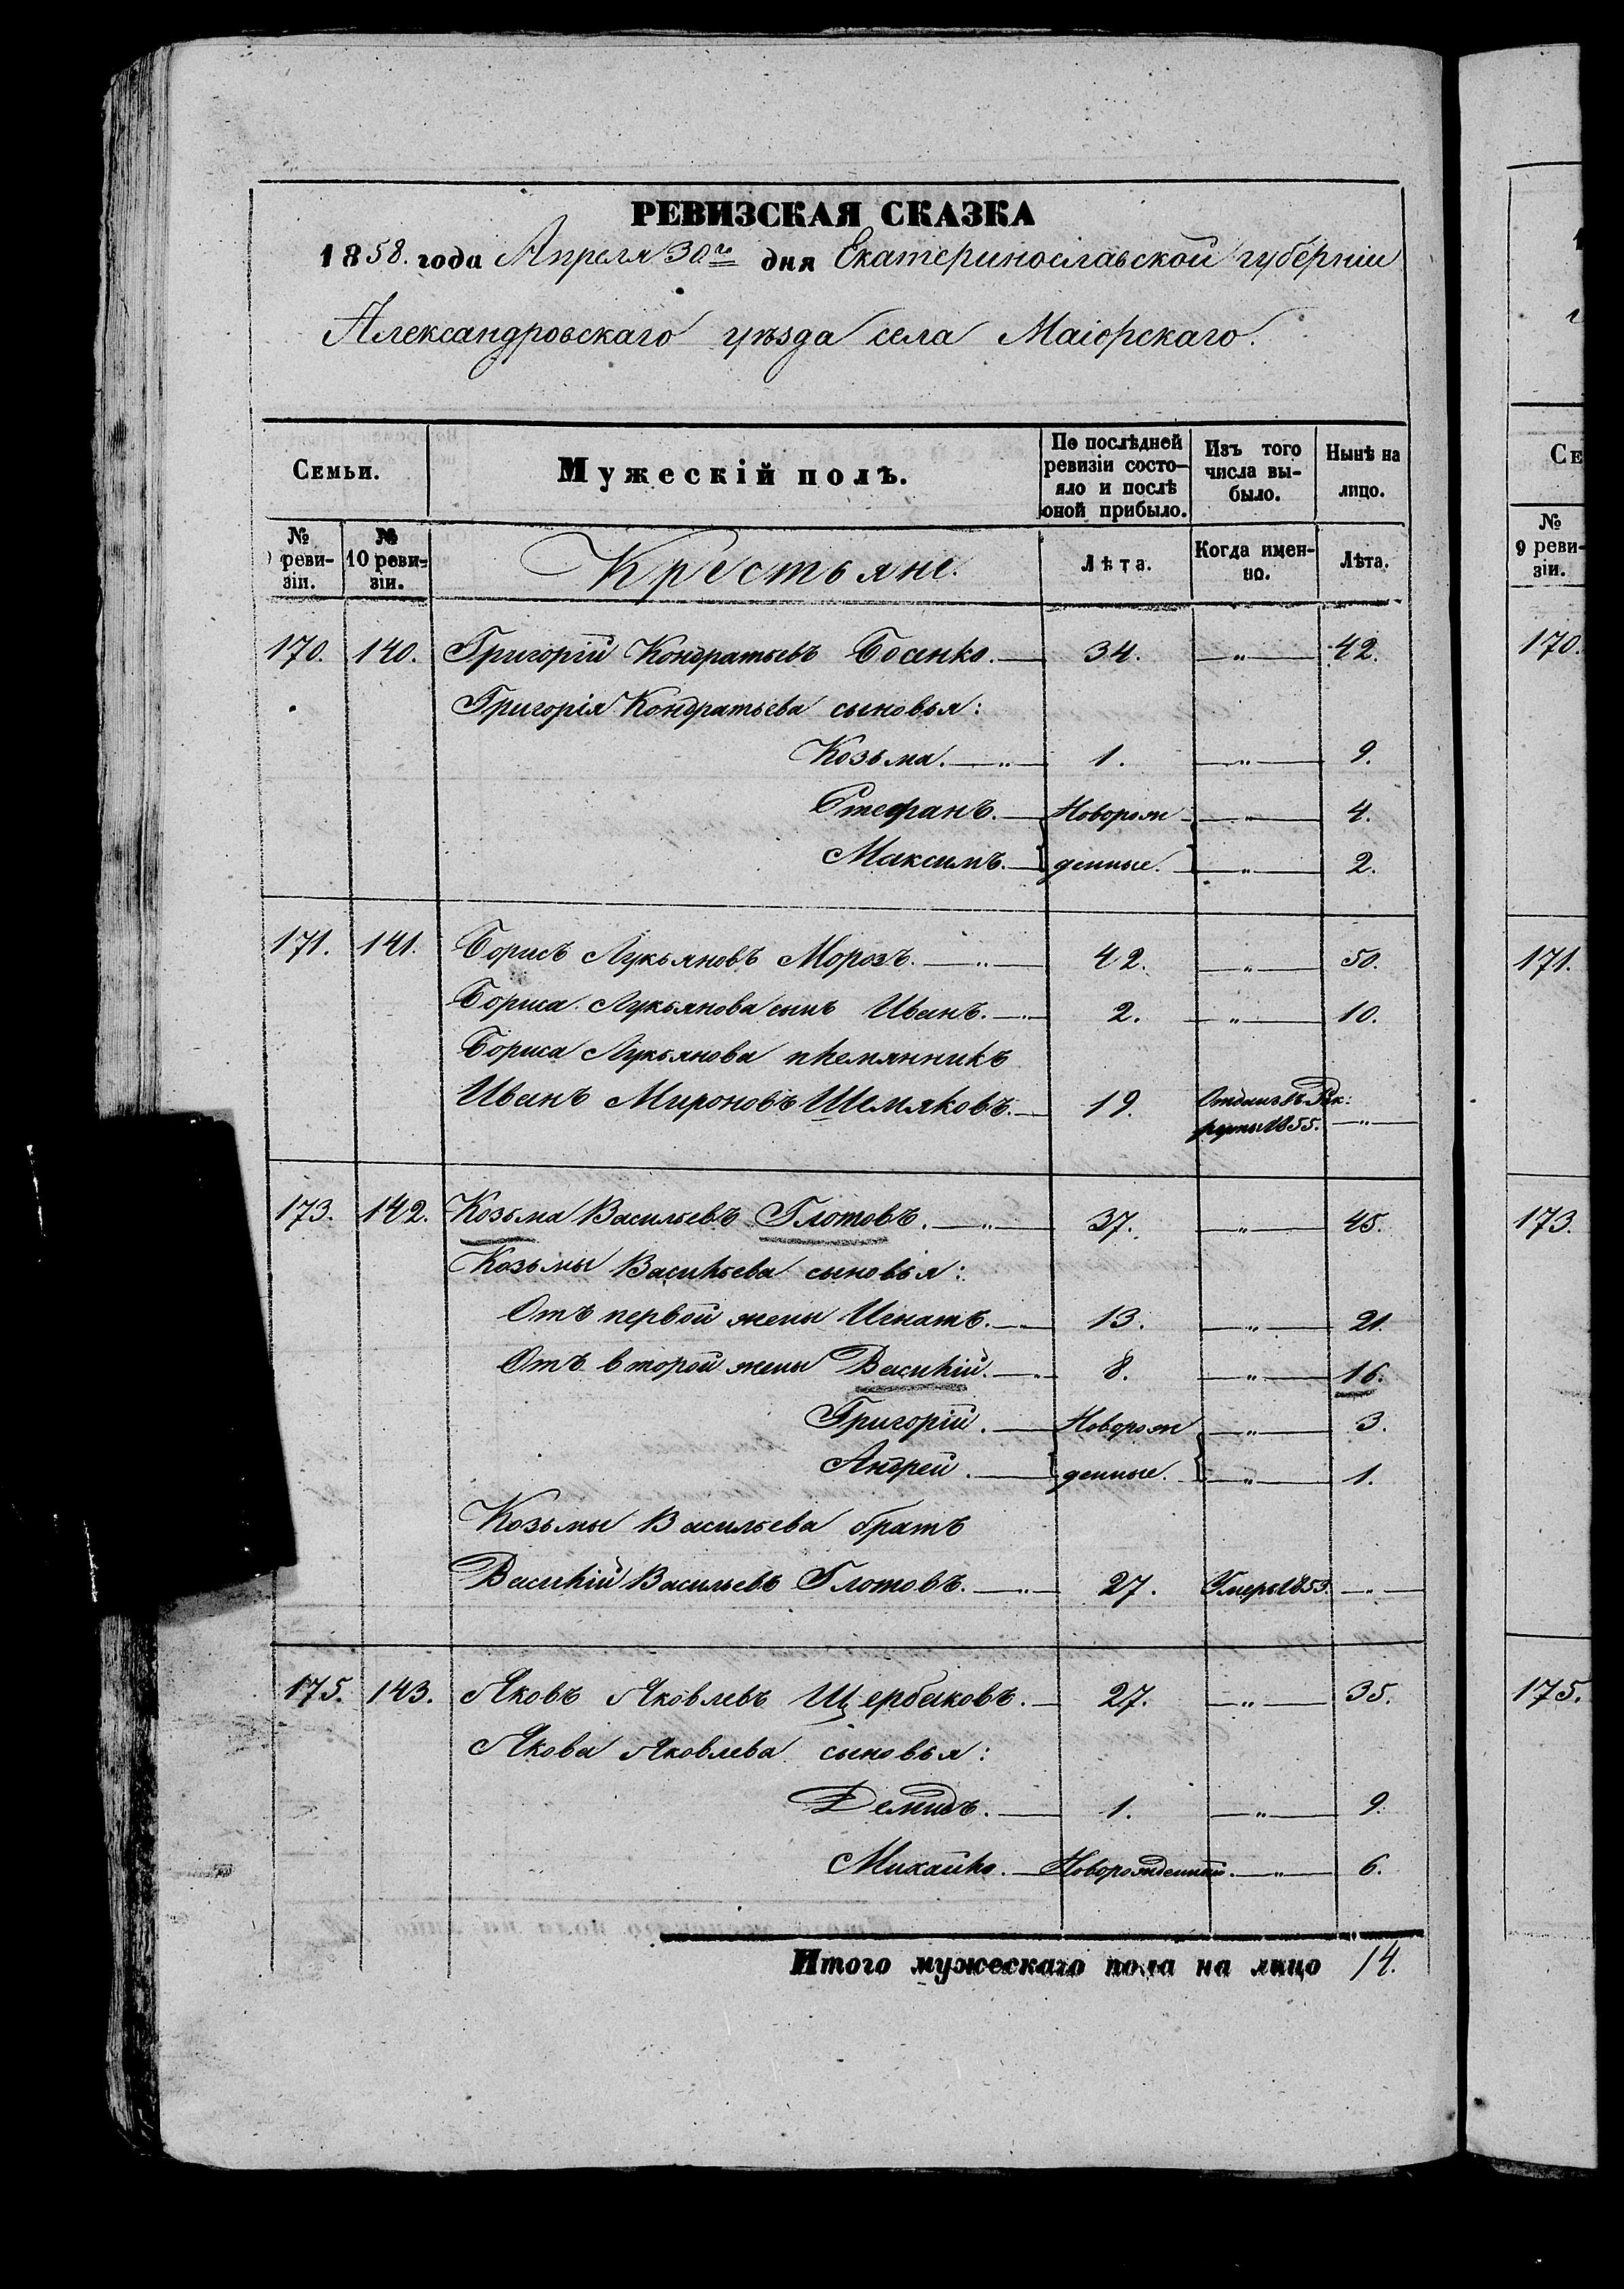 РЕВИЗСКАЯ СКАЗКА
1858. года Апреля 30го дня Екатеринославской губерніи
Александровскаго уѣзда села Маіорскаго.
Семьи. Мужескій полъ. По послѣдней ревизіи состо-яло и послѣ оной прибыло. Изъ того числа вы-было. Нынѣ на лицо.
№ реви-зіи. № 10 реви-зіи. Крестьяне. Лѣта. Когда имен-но. Лѣта.
170. 140. Григорій Кондратьевъ Боенко. — 34. — „ — 42.
Григорія Кондратьева сыновья:
Козьма. — „ — 1. — „ — 9.
Стефанъ. — Новорож — „ — 4.
Максимъ. — денные. — „ — 2.
171. 141. Борисъ Лукьяновъ Морозъ. — „ — 42. — „ — 50.
Бориса Лукьянова сынъ Иванъ. — „ — 2. — „ — 10.
Бориса Лукьянова племянникъ
Иванъ Мироновъ Шемяковъ. — 19. Отданъ въ Рек:
руты 1855. — „ —
173. 142. Козьма Васильевъ Глотовъ. — „ — 37. — „ — 45.
Козьмы Васильева сыновья:
Отъ первой жены Игнатъ. — „ — 13. — „ — 21.
Отъ второй жены Василій. — „ — 8. — „ — 16.
Григорій. — Новорож — „ — 3.
Андрей. — денные. — „ — 1.
Козьмы Васильева братъ
Василій Васильевъ Глотовъ. — „ — 27. Умеръ 1853. — „ —
175. 143. Яковъ Яковлевъ Щербаковъ. — 27. — „ — 35.
Якова Яковлева сыновья:
Демидъ. — 1. — „ — 9.
Михайло. — Новорожденный. — „ — 6.
Итого мужескаго пола на лицо 14.
СЕ
№ 9 реви-зіи.
170.
171.
173.
175.